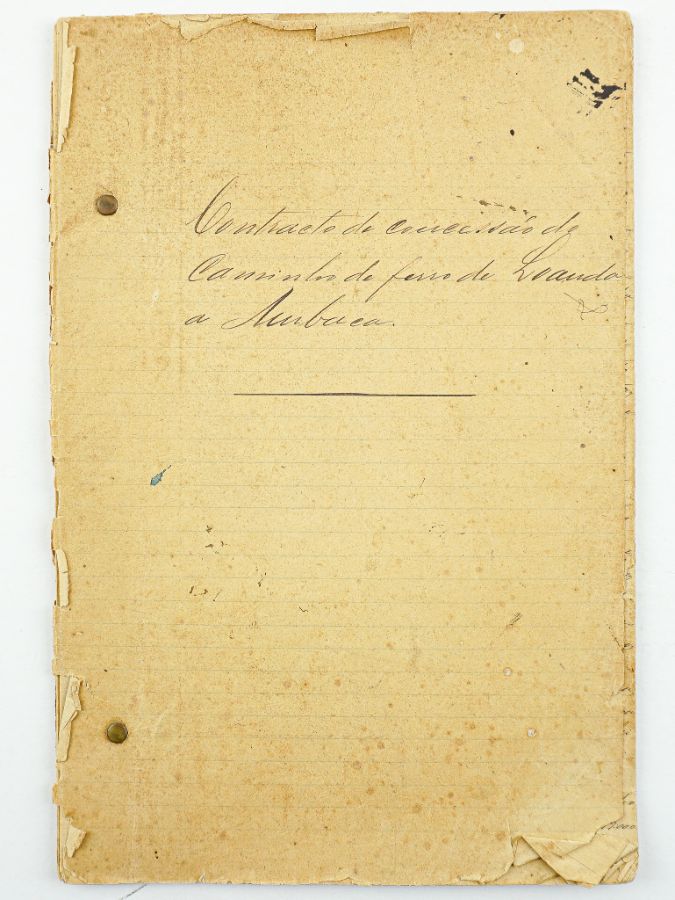 Contracto de concessão do
Caminho de ferro de Loanda
a Ambaca.